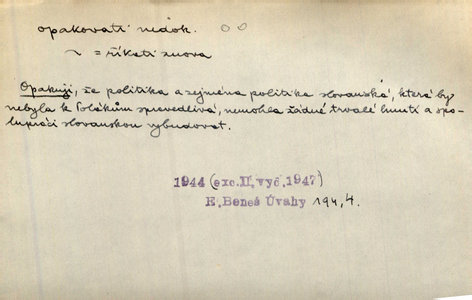 opakovati nedok.
~ = říkati znova
Opakuji, že politika a zejména politika slovanská, která by
nebyla k Polákům spravedlivá, nemohla žádné trvalé hnutí a spo-
lupráci slovanskou vybudovat.
1944 (exc. II. vyd. 1947)
E. Beneš Úvahy 194, 4.